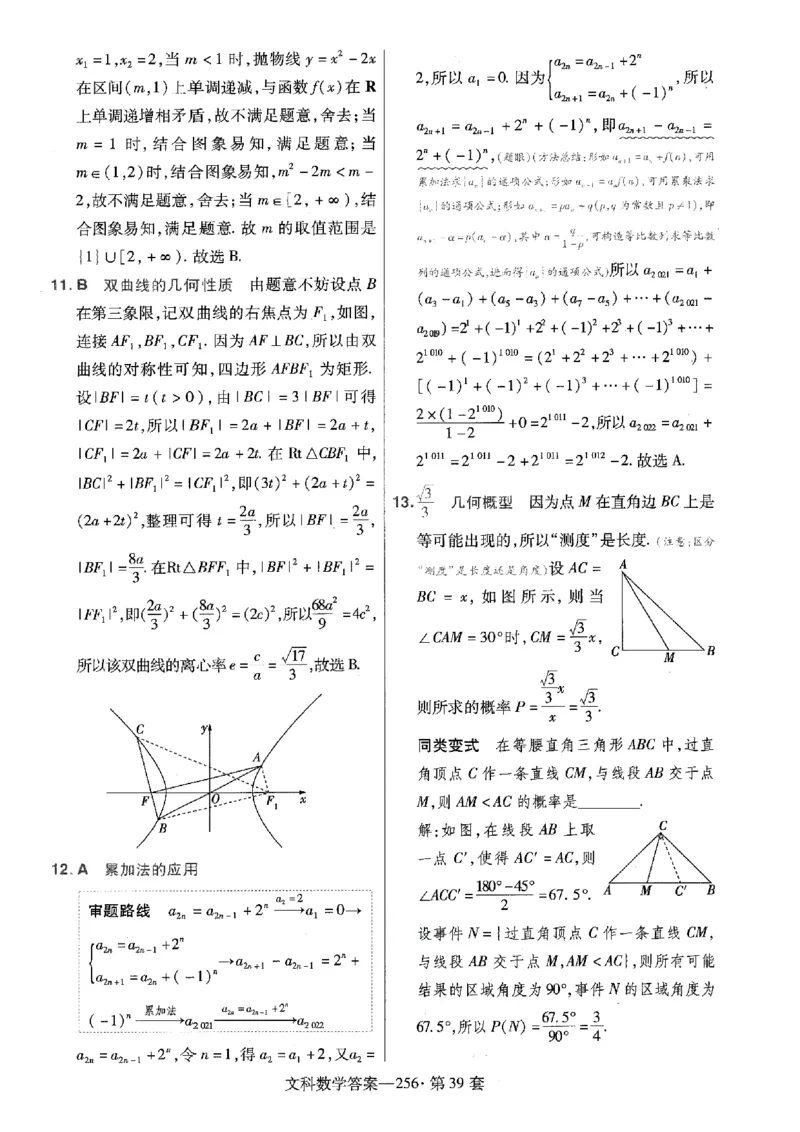 x₁=1,x₂=2,当 m<1 时,抛物线 y=x²-2x
在区间(m,1)上单调递减,与函数f(x)在 R
上单调递增相矛盾,故不满足题意,舍去;当
m = 1 时, 结合图象易知, 满足题意; 当
m∈(1,2)时,结合图象易知,m²-2m<m-
2,故不满足题意,舍去;当 m∈[2,+∞),结
合图象易知,满足题意. 故 m 的取值范围是
{1}∪[2,+∞). 故选 B.
11. B 双曲线的几何性质 由题意不妨设点 B
在第三象限,记双曲线的右焦点为 F₁,如图,
连接 AF₁,BF₁,CF₁. 因为 AF⊥BC,所以由双
曲线的对称性可知,四边形 AFBF₁ 为矩形.
设|BF|=t(t>0),由|BC|=3|BF|可得
|CF|=2t,所以|BF₁|=2a+|BF|=2a+t,
|CF₁|=2a+|CF|=2a+2t. 在 Rt△CBF₁ 中,
|BC|²+|BF₁|²=|CF₁|²,即(3t)²+(2a+t)²=
(2a+2t)²,整理可得 t=2a/3,所以|BF|=2a/3,
|BF₁|=8a/3. 在Rt△BFF₁ 中,|BF|²+|BF₁|²=
|FF₁|²,即(2a/3)²+(8a/3)²=(2c)²,所以68a²/9=4c²,
所以该双曲线的离心率e=c/a=√17/3,故选 B.
C y A F O F₁ x B
12. A 累加法的应用
审题路线 a₂ₙ=a₂ₙ₋₁+2ⁿ —a₂=2→a₁=0→
{a₂ₙ=a₂ₙ₋₁+2ⁿ
a₂ₙ₊₁=a₂ₙ+(-1)ⁿ →a₂ₙ₊₁-a₂ₙ₋₁=2ⁿ+
(-1)ⁿ —累加法→a₂₀₂₁ —a₂ₙ=a₂ₙ₋₁+2ⁿ→a₂₀₂₂
a₂ₙ=a₂ₙ₋₁+2ⁿ,令 n=1,得 a₂=a₁+2,又a₂=
2,所以 a₁=0. 因为{a₂ₙ=a₂ₙ₋₁+2ⁿ
a₂ₙ₊₁=a₂ₙ+(-1)ⁿ,所以
a₂ₙ₊₁=a₂ₙ₋₁+2ⁿ+(-1)ⁿ,即a₂ₙ₊₁-a₂ₙ₋₁=
2ⁿ+(-1)ⁿ,(题眼)(方法总结:形如aₙ₊₁=aₙ+f(n),可用
累加法求{aₙ}的通项公式;形如aₙ₊₁=aₙf(n),可用累乘法求
{aₙ}的通项公式;形如aₙ₊₁=paₙ+q(p,q为常数且p≠1),即
aₙ₊₁-α=p(aₙ-α),其中α=q/(1-p),可构造等比数列求等比数
列的通项公式,进而得{aₙ}的通项公式)所以a₂₀₂₁=a₁+
(a₃-a₁)+(a₅-a₃)+(a₇-a₅)+…+(a₂₀₂₁-
a₂₀₁₉)=2¹+(-1)¹+2²+(-1)²+2³+(-1)³+…+
2¹⁰¹⁰+(-1)¹⁰¹⁰=(2¹+2²+2³+…+2¹⁰¹⁰)+
[(-1)¹+(-1)²+(-1)³+…+(-1)¹⁰¹⁰]=
2×(1-2¹⁰¹⁰)/(1-2)+0=2¹⁰¹¹-2,所以a₂₀₂₂=a₂₀₂₁+
2¹⁰¹¹=2¹⁰¹¹-2+2¹⁰¹¹=2¹⁰¹²-2. 故选 A.
13. √3/3 几何概型 因为点 M 在直角边 BC 上是
等可能出现的,所以“测度”是长度. (注意:区分
“测度”是长度还是角度)设 AC=
BC = x, 如图所示, 则当
∠CAM=30°时,CM=√3/3x,
A C M B
则所求的概率 P=(√3/3x)/x=√3/3.
同类变式 在等腰直角三角形 ABC 中,过直
角顶点 C 作一条直线 CM,与线段 AB 交于点
M,则 AM<AC 的概率是________.
解:如图,在线段 AB 上取
一点 C′,使得 AC′=AC,则
∠ACC′=(180°-45°)/2=67.5°.
C A M C′ B
设事件 N={过直角顶点 C 作一条直线 CM,
与线段 AB 交于点 M,AM<AC},则所有可能
结果的区域角度为 90°,事件 N 的区域角度为
67.5°,所以 P(N)=67.5°/90°=3/4.
文科数学答案—256·第 39 套